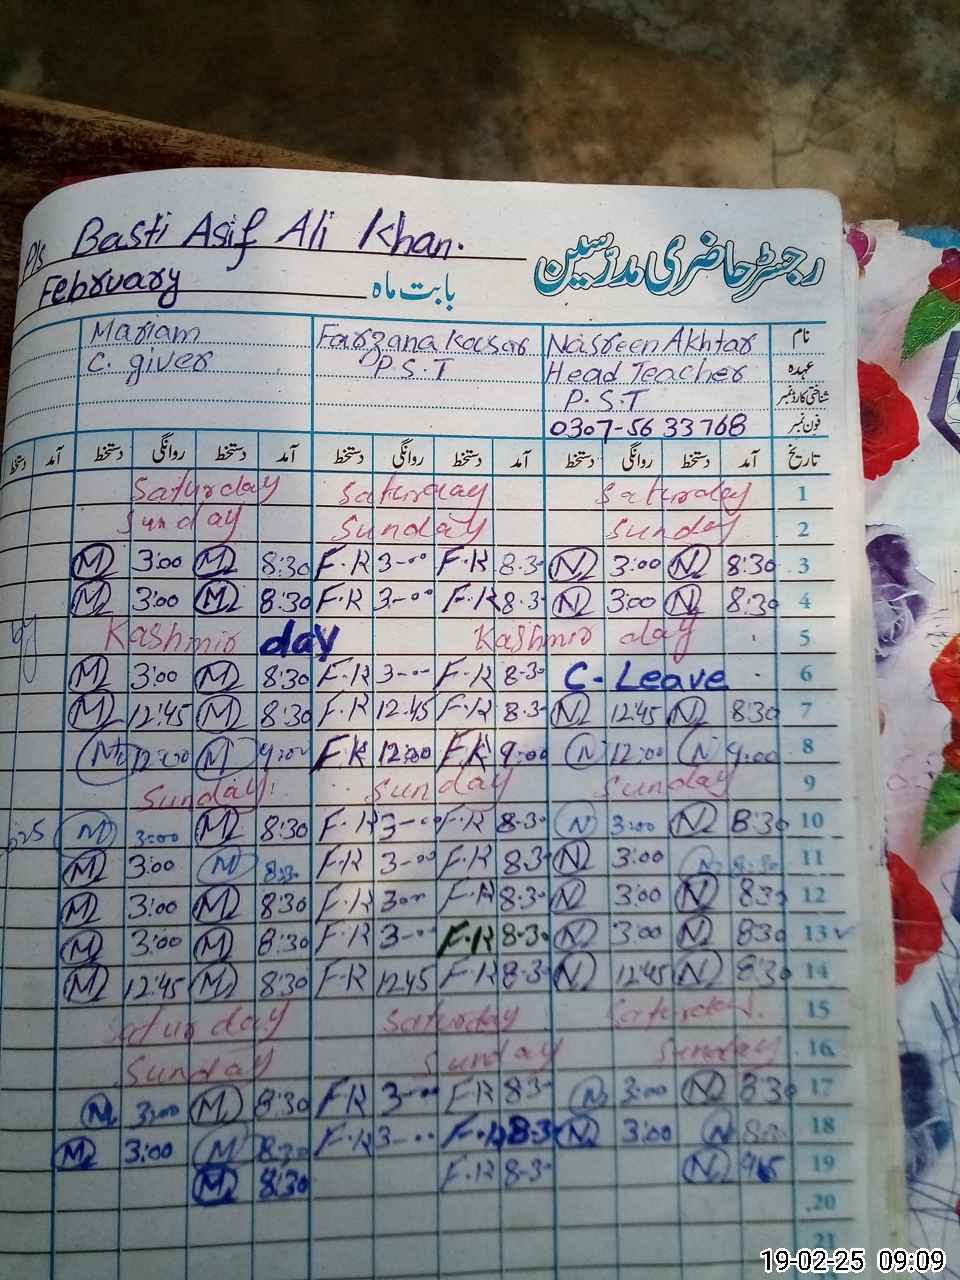 P/s Basti Asif Ali Khan.
رجسٹر حاضری مدرسین
February بابت ماہ
Mariam Farzana Kasar Nasreen Akhtar نام
C. giver P.S.T Head Teacher عہدہ
P.S.T شناختی کارڈ نمبر
0307-5633768 فون نمبر
دستخط آمد دستخط روانگی دستخط آمد دستخط روانگی دستخط آمد دستخط روانگی دستخط آمد تاریخ
Saturday Saturday Saturday 1
Sunday Sunday Sunday 2
M 3:00 M 8:30 F.R 3-00 F.R 8.30 N 3:00 N 8:30 3
M 3:00 M 8:30 F.R 3-00 F.R 8.3 N 3:00 N 8:30 4
Kashmir day Kashmir day 5
M 3:00 M 8:30 F.R 3-00 F.R 8.30 C-Leave 6
M 12:45 M 8:30 F.R 12.45 F.R 8.3 N 12:45 N 8:30 7
M 12:00 M 9:00 F.R 12:00 F.R 9:00 N 12:00 N 9:00 8
Sunday Sunday Sunday 9
M 3:00 M 8:30 F.R 3-00 F.R 8.30 N 3:00 N 8:30 10
M 3:00 M 8:30 F.R 3-00 F.R 8.30 N 3:00 N 8:30 11
M 3:00 M 8:30 F.R 3-00 F.R 8.30 N 3:00 N 8:30 12
M 3:00 M 8:30 F.R 3-00 F.R 8.30 N 3:00 N 830 13
M 12:45 M 8:30 F.R 12.45 F.R 8.30 N 12:45 N 8:30 14
Saturday Saturday Saturday 15
Sunday Sunday Sunday 16
M 3:00 M 8:30 F.R 3-00 F.R 8.3 N 3:00 N 8:30 17
M 3:00 M 8:30 F.R 3-00 F.R 8.3 N 3:00 N 8:30 18
M 8:30 F.R 8-30 N 19
20
21
19-02-25 09:09